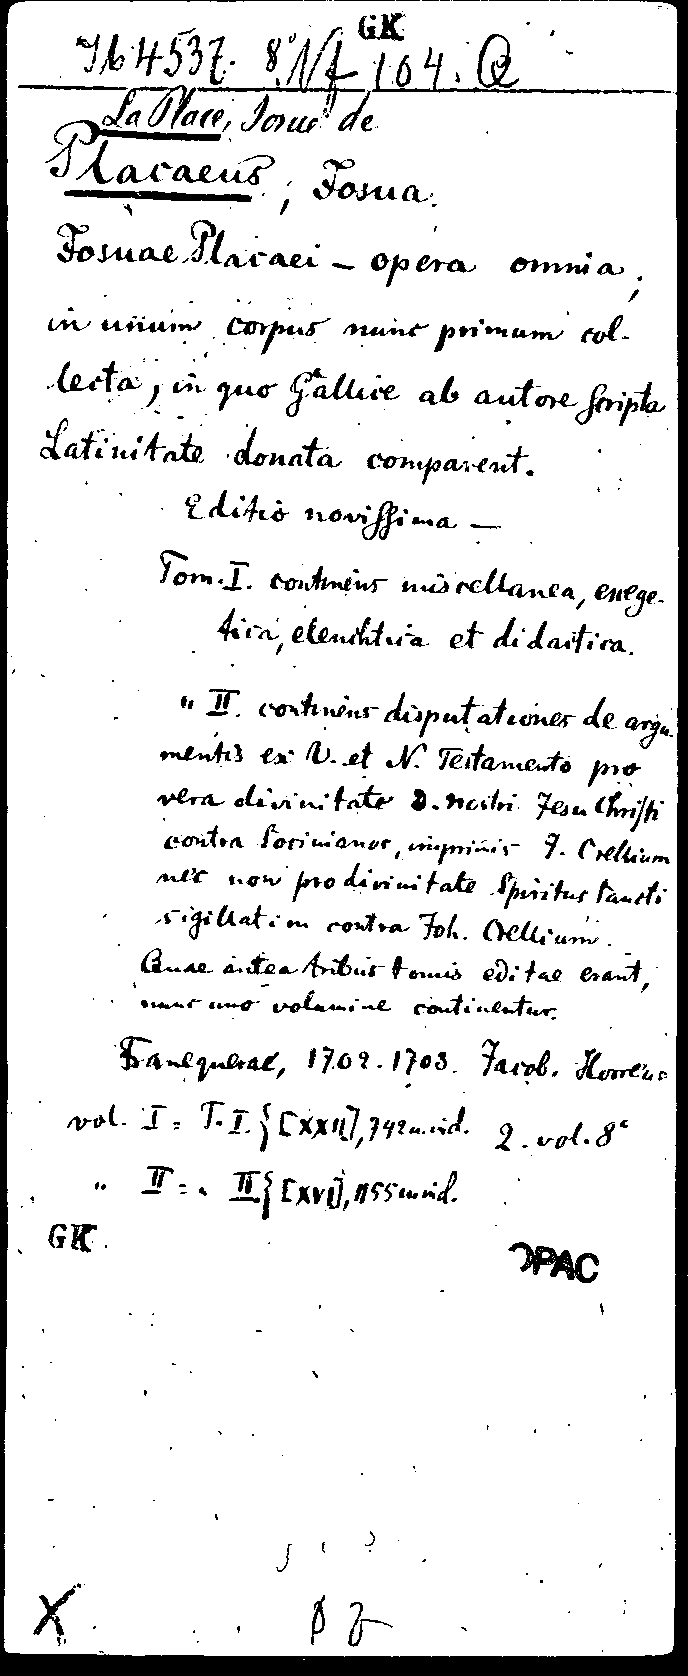 GK
Ib 4537. 8° Nf 104. Q
La Place, Josué de
Placaeus, Josua.
Josuae Placaei – opera omnia,
in unum corpus nunc primum col-
lecta, in quo Gallice ab autore scripta
Latinitate donata comparent.
Editio novissima —
Tom. I. continens miscellanea, exege-
tica, elenchtica et didactica.
" II. continens disputationes de argu-
mentis ex V. et N. Testamento pro
vera divinitate D. nostri Jesu Christi
contra Socinianos, imprimis J. Crellium
nec non pro divinitate Spiritus Sancti
sigillatim contra Joh. Crellium.
Quae antea tribus tomis editae erant,
nunc uno volumine continentur.
Franequerae, 1702. 1703. Jacob. Horreus
vol. I = T. I. { [XXII], 742 u. ind. 2. vol. 8°
" II = " II { [XVI], 1155 u. ind.
GK
OPAC
X